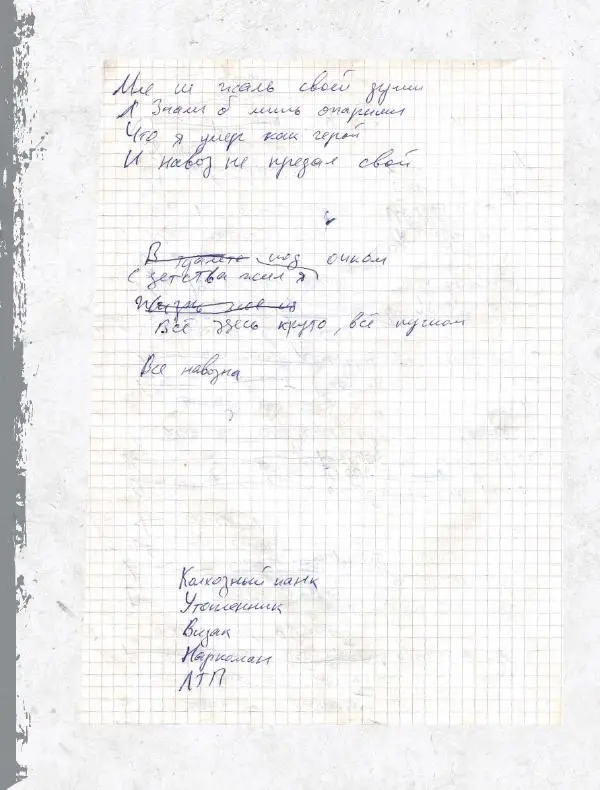 Мне не жаль своей души
А Знали б лишь опарыши
Что я умер как герой
И навоз не предал свой
В туалете под очком
С детства жил я
Жизнь моя
Всё здесь круто, всё пучком
Все навозна
Колхозный панк
Утопленник
Визак
Наркоман
ЛТП